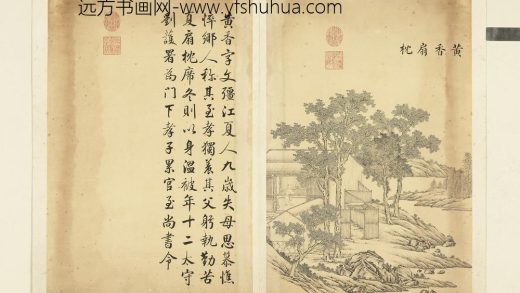 远方书画网-www.yfshuhua.com
黄香扇枕
黄香字文彊江夏人九歳失母思慕憔
悴鄉人称其至孝獨養其父躬執勤苦
夏扇枕席冬則以身温被年十二太守
劉護署為門下孝子累官至尚書令